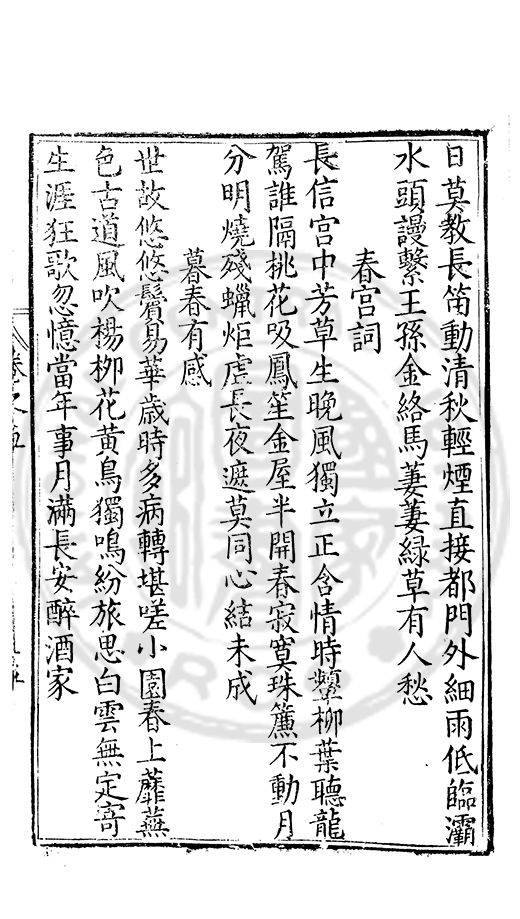 日莫教長笛動清秋輕煙直接都門外細雨低臨灞
水頭謾繫王孫金絡馬萋萋緑草有人愁
春宮詞
長信宮中芳草生晚風獨立正含情時顰柳葉聽龍
駕誰隔桃花吸鳳笙金屋半開春寂寞珠簾不動月
分明燒殘蠟炬虛長夜遮莫同心結未成
暮春有感
世故悠悠鬢易華歲時多病轉堪嗟小園春上蘼蕪
色古道風吹楊柳花黃鳥獨鳴紛旅思白雲無定寄
生涯狂歌忽憶當年事月滿長安醉酒家
卷之五